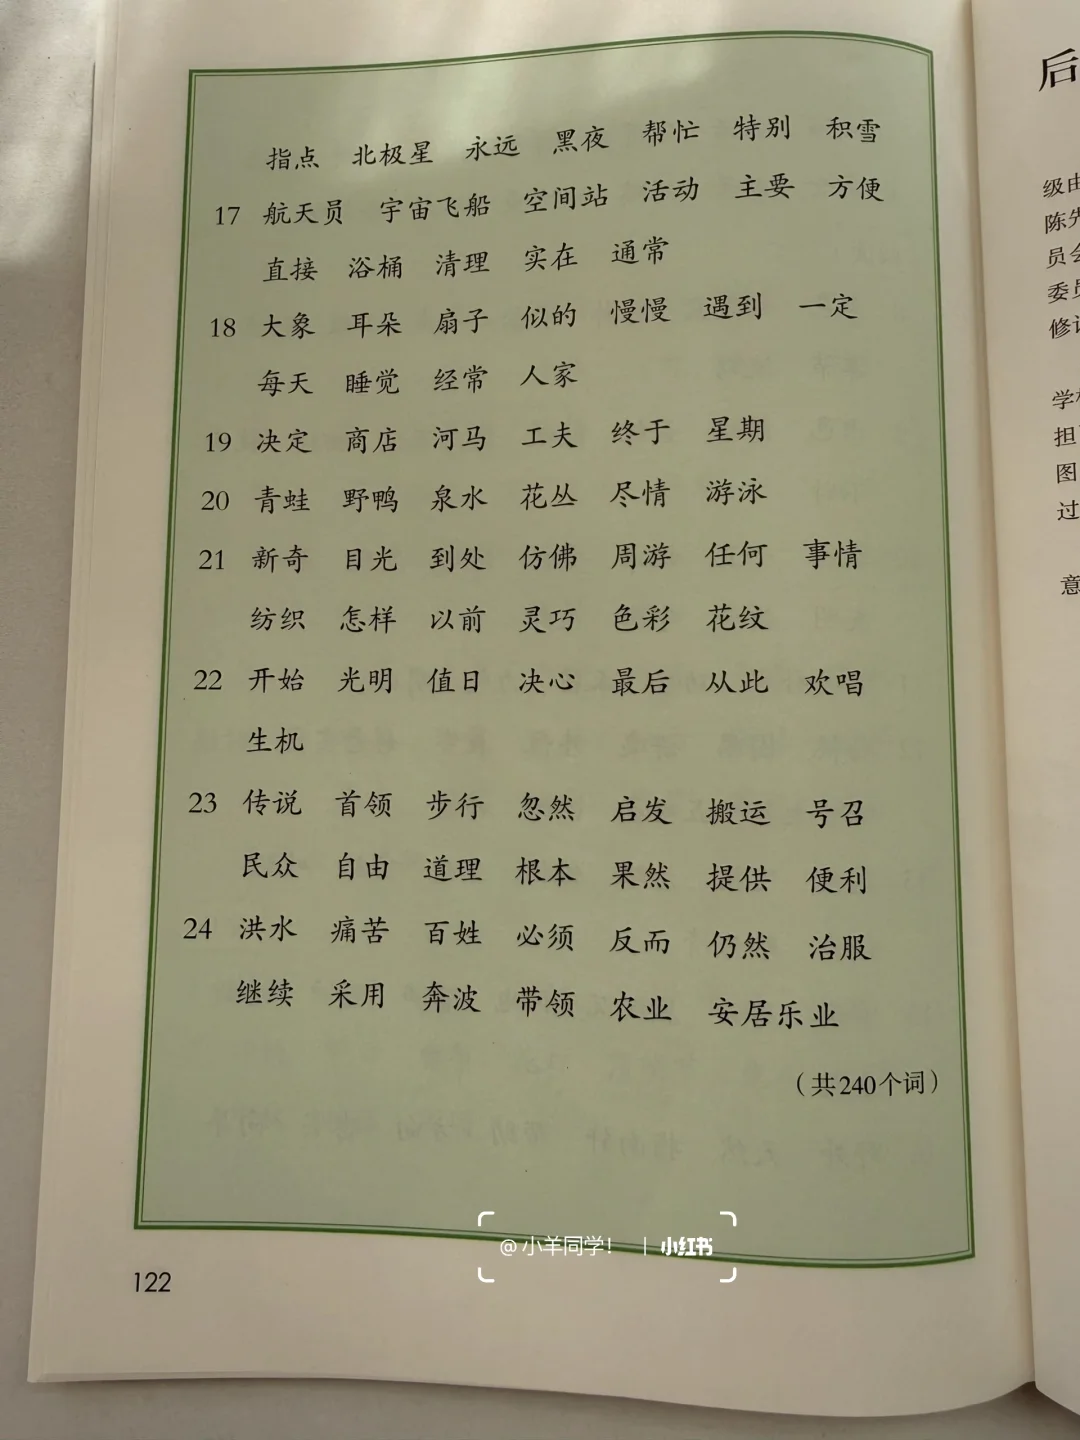 指点 北极星 永远 黑夜 帮忙 特别 积雪
17 航天员 宇宙飞船 空间站 活动 主要 方便
直接 浴桶 清理 实在 通常
18 大象 耳朵 扇子 似的 慢慢 遇到 一定
每天 睡觉 经常 人家
19 决定 商店 河马 工夫 终于 星期
20 青蛙 野鸭 泉水 花丛 尽情 游泳
21 新奇 目光 到处 仿佛 周游 任何 事情
纺织 怎样 以前 灵巧 色彩 花纹
22 开始 光明 值日 决心 最后 从此 欢唱
生机
23 传说 首领 步行 忽然 启发 搬运 号召
民众 自由 道理 根本 果然 提供 便利
24 洪水 痛苦 百姓 必须 反而 仍然 治服
继续 采用 奔波 带领 农业 安居乐业
（共240个词）
@小羊同学！ | 小红书
122
后
级由
员会
委员
图
过
意